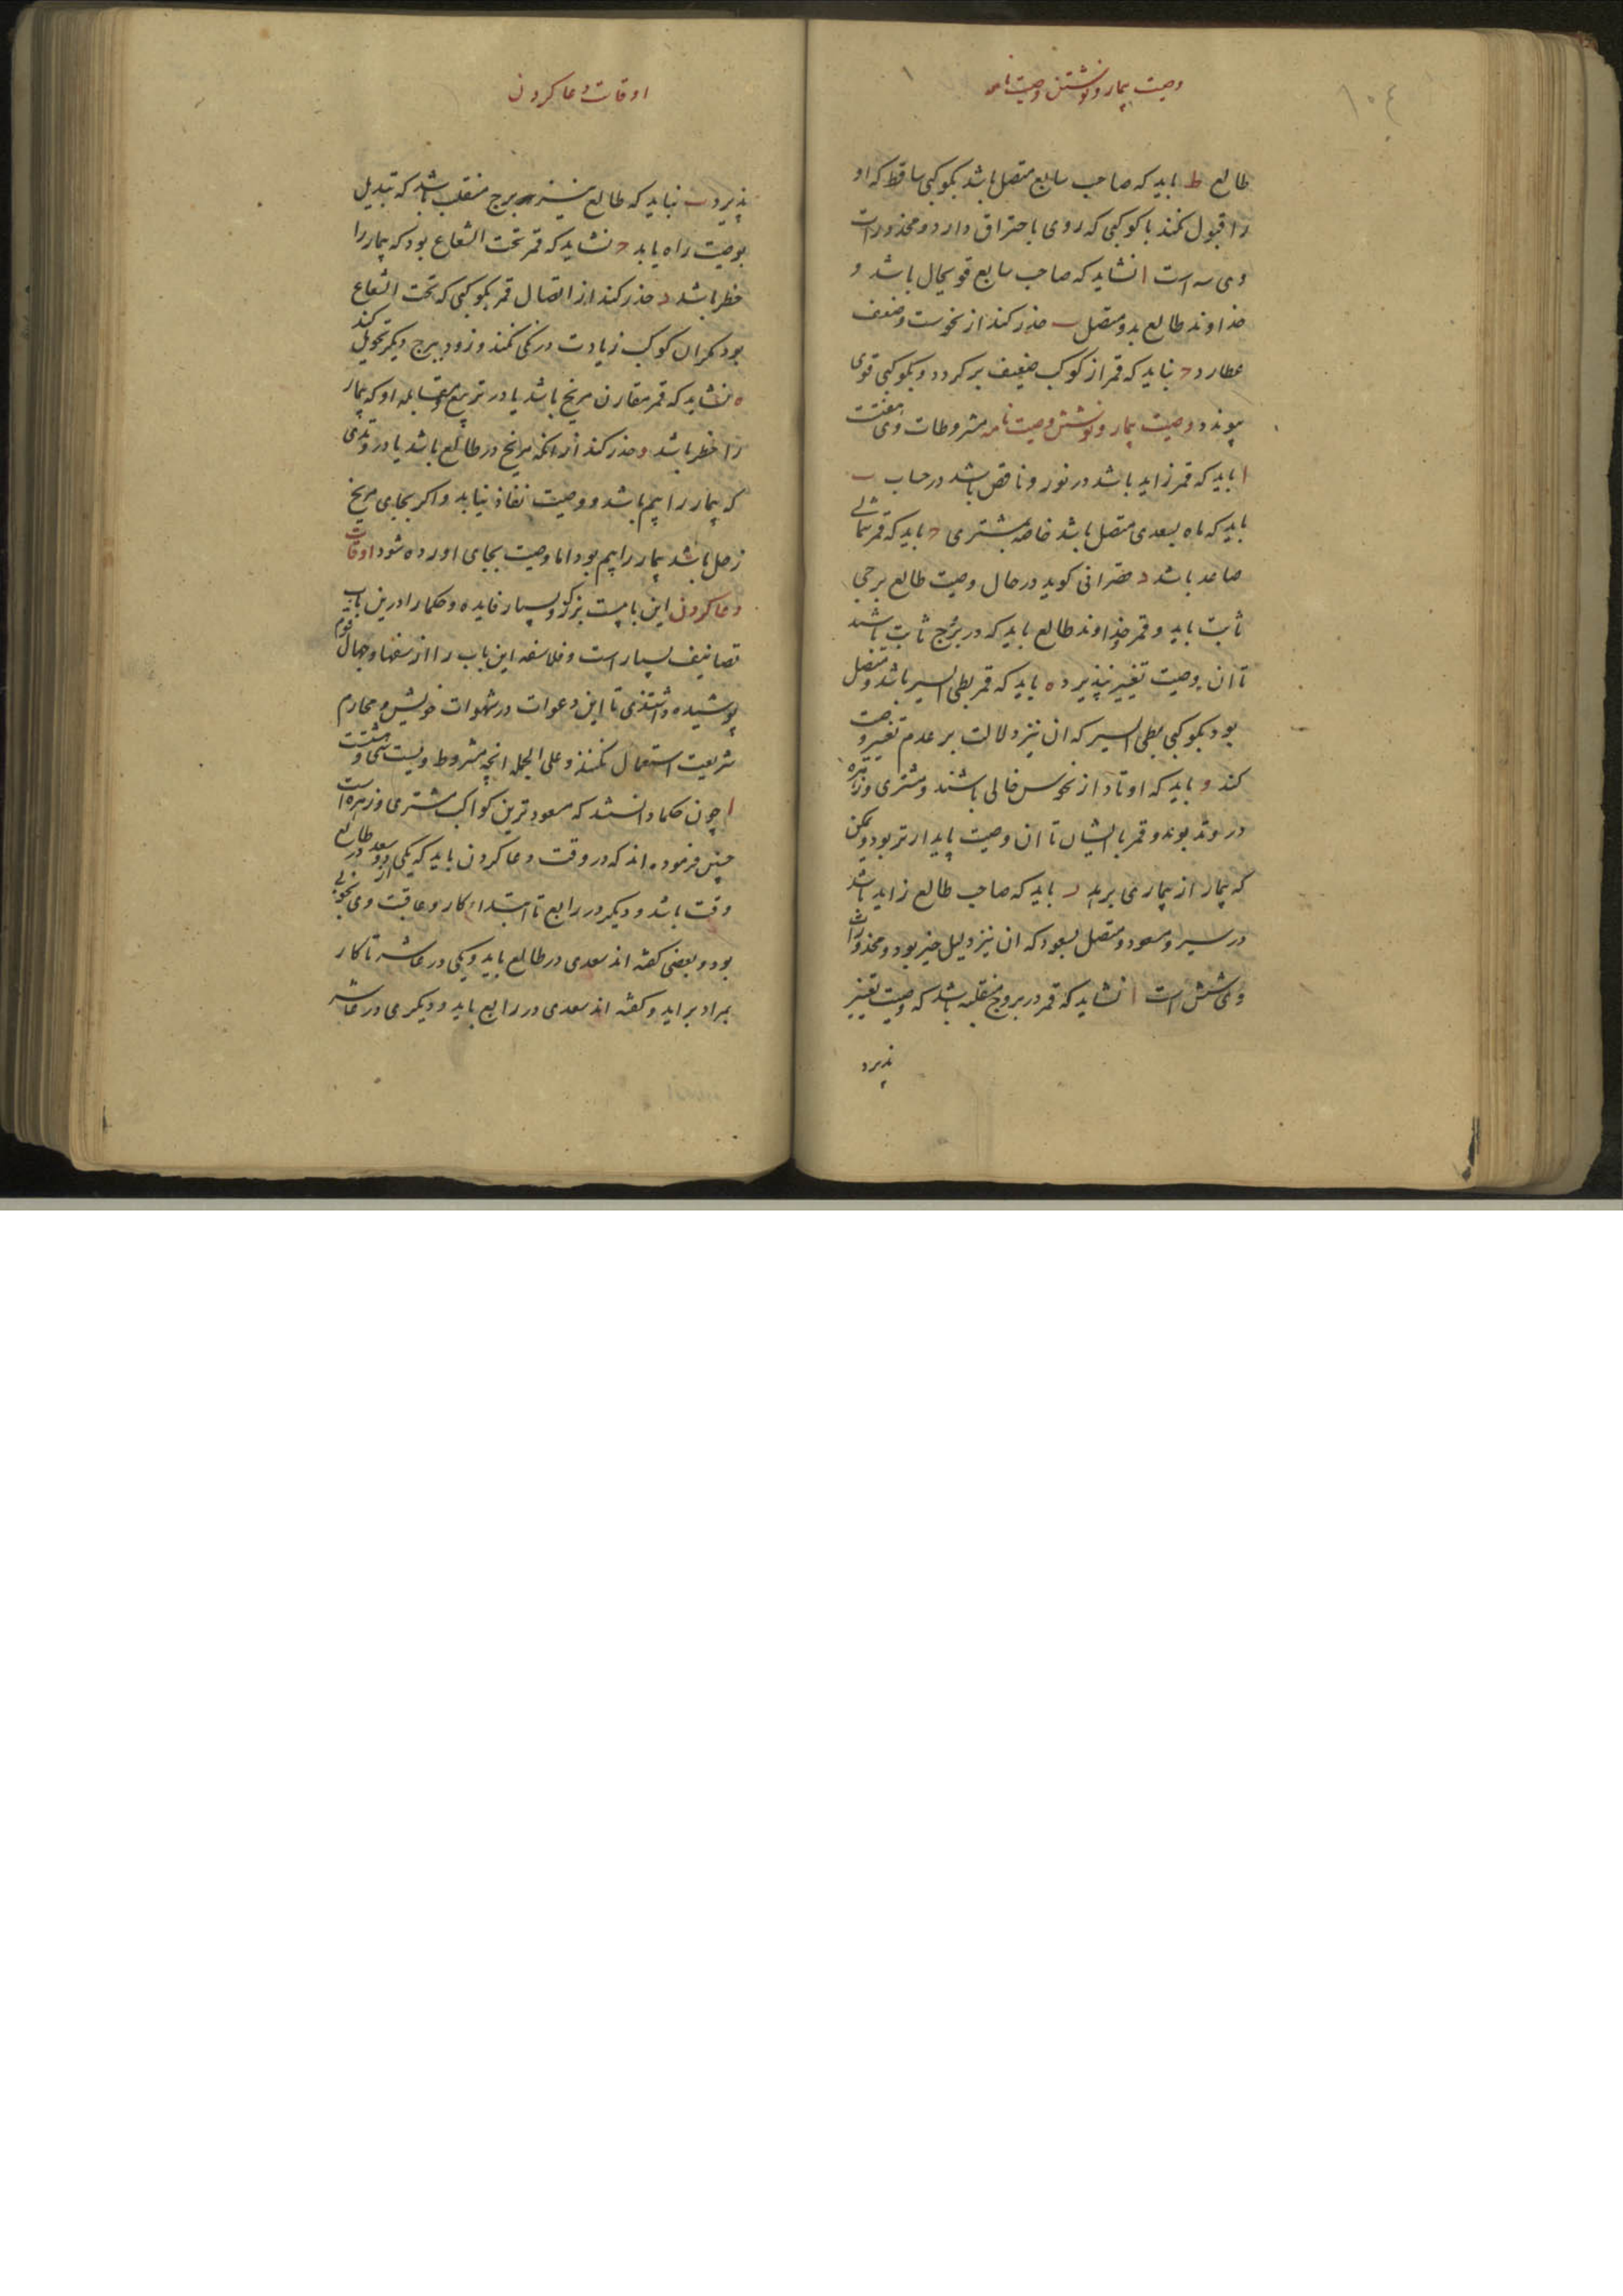 وصیت بیمار و نوشتن وصیت نامه
۱۰۴
طالع ط باید که صاحب سابع متصل باشد بکوکبی ساقط که او
را قبول نکند یا کوکبی که روی باحتراق دارد و محذورات
وی سه است ا نشاید که صاحب سابع قوی حال باشد و
خداوند طالع بدو متصل ب حذر کند از نحوست و ضعف
عطارد ج نباید که قمر از کوکب ضعیف برکردد و بکوکبی قوی
پیوندد وصیت بیمار و نوشتن وصیت نامه مشروطات وی هفتست
ا باید که قمر زاید باشد در نور و ناقص باشد در حساب ب
باید که ماه بسعدی متصل باشد خاصه بمشتری ج باید که قمر شمالی
صاعد باشد د حضرانی کوید در حال وصیت طالع برجی
ثابت باید و قمر و خداوند طالع باید که در برج ثابت باشند
تا ان وصیت تغییر نپذیرد ه باید که قمر بطی السیر باشد و متصل
بود بکوکبی بطی السیر که ان نیز دلالت بر عدم تغییر وصیت
کند و باید که اوتاد از نحوس خالی باشند و مشتری و زهره
در وتد بوند و قمر با ایشان تا ان وصیت پایدارتر بود و ممکن
که بیمار از بیماری برهد ز باید که صاحب طالع زاید باشد
در سیر و مسعود و متصل بسعود که ان نیز دلیل خیر بود و محذورات
وی شش است ا نشاید که قمر در بروج منقلبه باشد که وصیت تغییر
پذیرد
اوقات دعا کردن
پذیرد ب نباید که طالع نیز برج منقلب باشد که تبدیل
بوصیت راه یابد ج نشاید که قمر تحت الشعاع بود که بیمار را
خطر باشد د حذر کند از اتصال قمر بکوکبی که تحت الشعاع
بود مکر ان کوکب زیادت درنکی نکند و زود ببرج دیکر تحویل کند
ه نشاید که قمر مقارن مریخ باشد یا در تربیع و مقابله او که بیمار
را خطر باشد و حذر کند از انکه مریخ در طالع باشد یا در وتدی
که بیمار را بیم باشد و وصیت نفاذ نیابد و اکر بجای مریخ
زحل باشد بیمار را بیم بود اما وصیت بجای اورده شود اوقات
دعا کردن این بابیست بزرک و بسیار فایده و حکما را درین باب
تصانیف بسیار است و فلاسفه این باب را از سفها و جهال قوم
پوشیده داشتندی تا این دعوات در شهوات خویش و محارم
شریعت استعمال نکنند و علی الجمله انچه مشروط ویست سی و هشتست
ا چون حکما دانستند که مسعودترین کواکب مشتری و زهره است
چنین فرموده اند که در وقت دعا کردن باید که یکی از دو سعد در طالع
وقت باشد و دیکر در رابع تا ابتداء کار و عاقبت وی بخوبی
بود و بعضی کفته اند سعدی در طالع باید و یکی در عاشر تا کار
بمراد براید و کفته اند سعدی در رابع باید و دیکری در عاشر